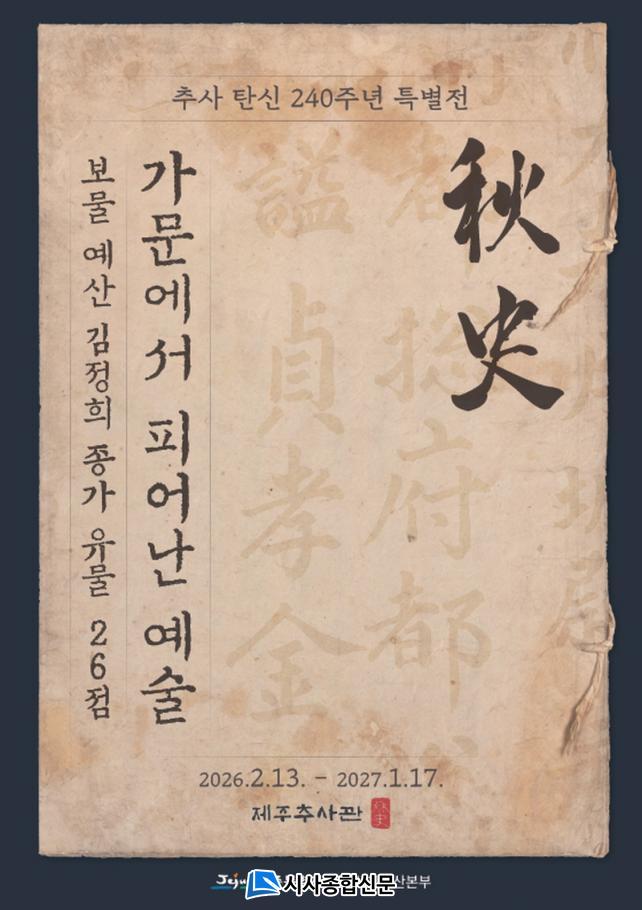 추사 탄신 240주년 특별전
秋史
가문에서 피어난 예술
보물 예산 김정희 종가 유물 26점
諡 貞孝 金
府都
2026.2.13. - 2027.1.17.
제주추사관
시사종합신문
산본부